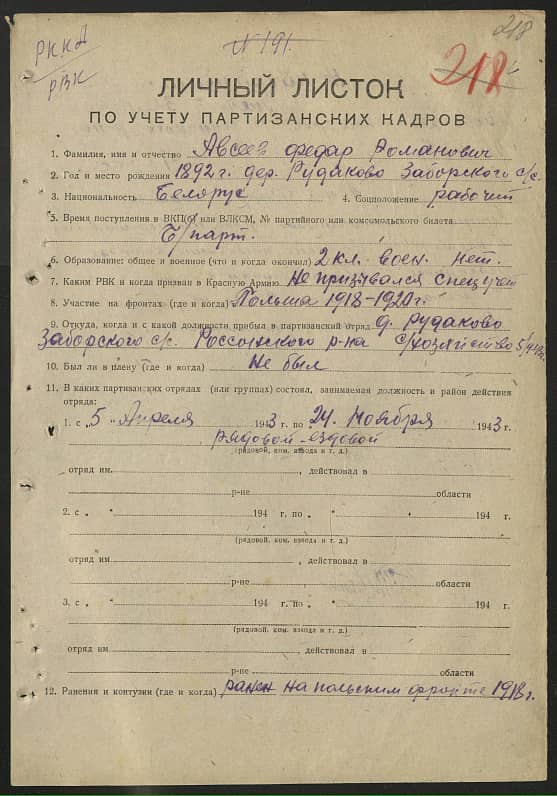 218
РККА
РВК
№ 191.
218
ЛИЧНЫЙ ЛИСТОК
ПО УЧЕТУ ПАРТИЗАНСКИХ КАДРОВ
1. Фамилия, имя и отчество Авсеев Федар Романович
2. Год и место рождения 1892 г. дер. Рудаково Заборского с/с.
3. Национальность Белорус 4. Соцположение рабочий
5. Время поступления в ВКП(б) или ВЛКСМ, № партийного или комсомольского билета
Б/парт.
6. Образование: общее и военное (что и когда окончил) 2 кл. воен. нет.
7. Каким РВК и когда призван в Красную Армию Не призывался спец учет
8. Участие на фронтах (где и когда) Польша 1918-1920 г.
9. Откуда, когда и с какой должности прибыл в партизанский отряд д. Рудаково
Заборского с/с. Россонского р-на с/хозяйство
10. Был ли в плену (где и когда) Не был
11. В каких партизанских отрядах (или группах) состоял, занимаемая должность и район действия
отряда:
1. с „5 „ Апреля 1943 г. по „ 24 „ Ноября 1943 г.
рядовой-ездовой
(рядовой, ком. взвода и т. д.)
отряд им , действовал в
р-не области
2. с „ „ 194 г. по „ „ 194 г.
(рядовой, ком. взвода и т. д.)
отряд им , действовал в
р-не области
3. с „ „ 194 г. по „ „ 194 г.
(рядовой, ком. взвода и т. д.)
отряд им , действовал в
р-не области
12. Ранения и контузии (где и когда) ранен на польским фронте 1918 г.